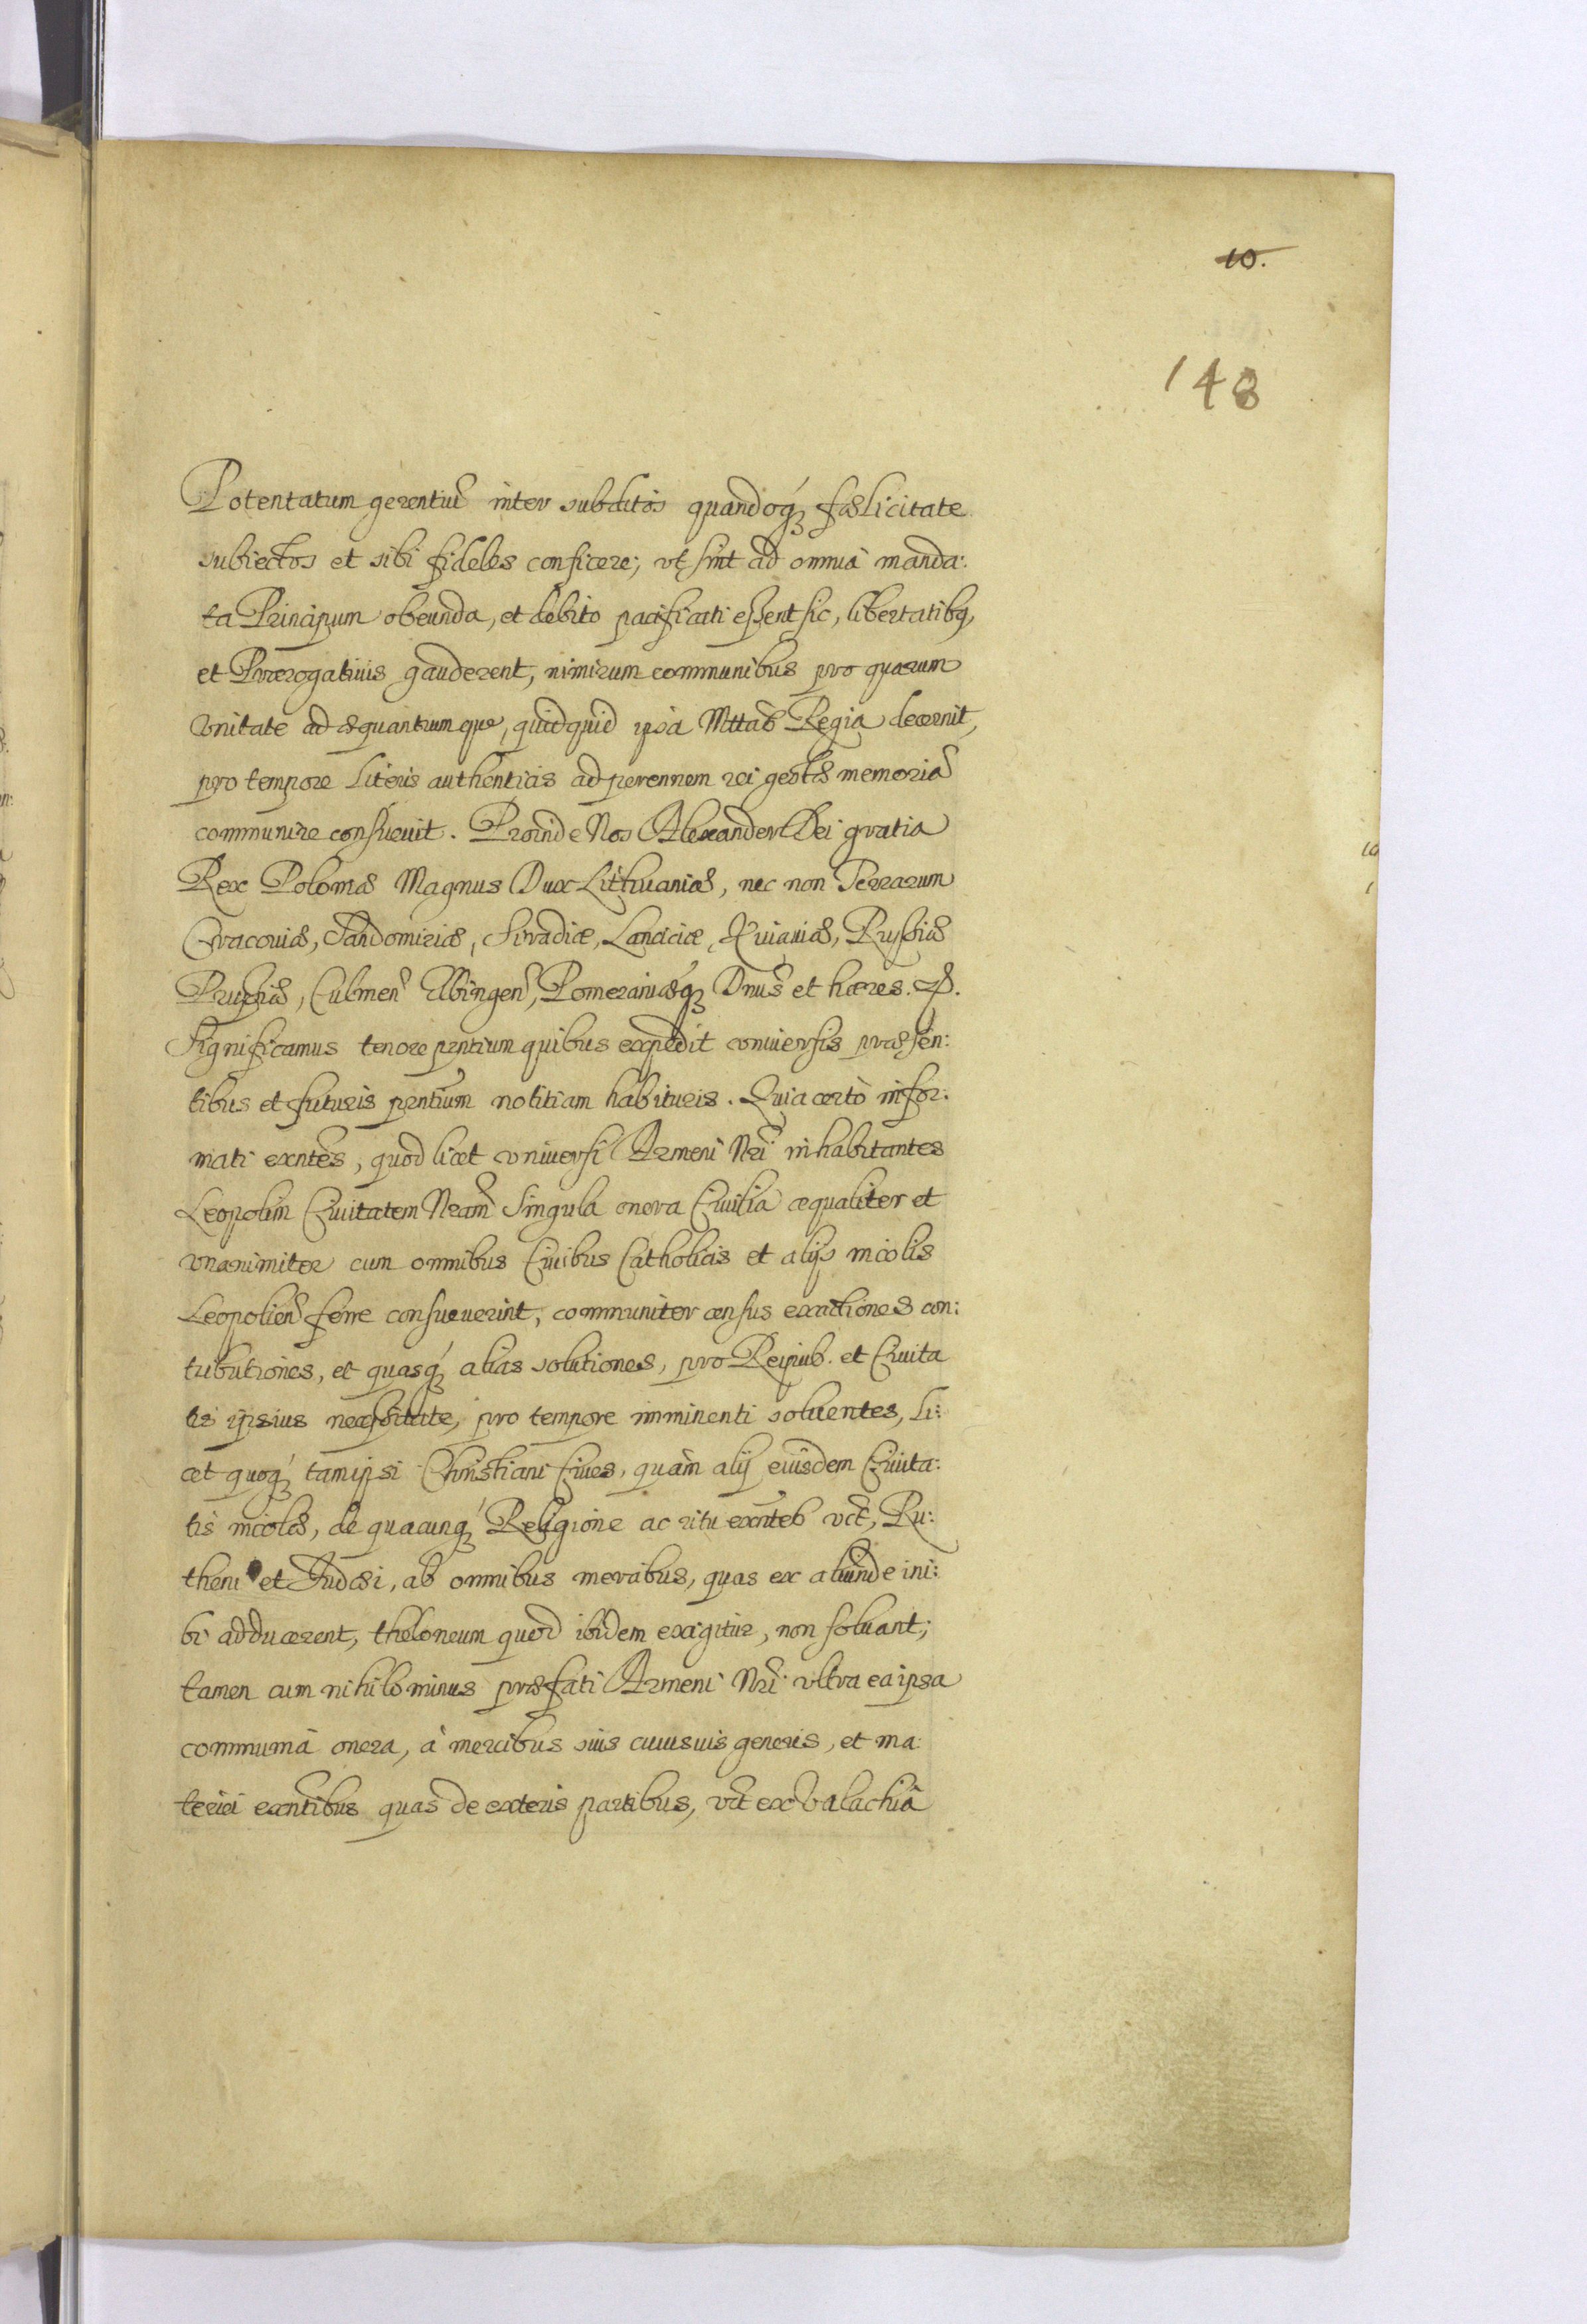 10.
148
Potentatum gerentiũ inter subditos quandoq́ʒ fælicitate
subiectos et sibi fideles conficere; vt sint ad omnia manda:
ta Principum obeunda, et debito pacificati essent sic, libertatibq,
et Prærogatiuis gauderent, nimirum communibus pro quarum
vnitate ad æquantrumque, quidquid ipsa Mttas Regia decernit,
pro tempore Literis authenticis ad perennem rei gestæ memoriã
communire consueuit. Proinde Nos Alexander Dei gratia
Rex Poloniæ Magnus Dux Lithuaniæ, nec non Terrarum
Cracouiæ, Sandomiriæ, Siradiæ, Lanciciæ, Cuiauiæ, Russiæ
Prussiæ, Culmeñ Elbingeñ, Pomeraniæq́ʒ Dnus̃ et hæres. &.
Significamus tenore pñtium quibus expedit vniuersis præsen:
tibus et futuris pñtium notitiam habituris. Quia certò infor:
mati exñtes, quod licet vniuersi Armeni Nrĩ inhabitantes
Leopolim Ciuitatem Nram̃ singula onera Ciuilia æqualiter et
vnanimiter cum omnibus Ciuibus Catholicis et alijs incolis
Leopolieñ ferre consueuerint, communiter census exactiones con:
tributiones, et quasq́ʒ alias solutiones, pro Reipub. et Ciuita
tis ipsius necessitate, pro tempore imminenti soluentes, Li:
cet quoq́ʒ tam ipsi Christiani Ciues, quàm alij eiusdem Ciuita:
tis incolæ, de quacunq́ʒ Religione ac ritu exñtes vct̃, Ru:
theni et Judæi, ab omnibus mercibus, quas ex aliunde ini:
bi adducerent, theloneum quod ibidem exigitur, non soluant;
tamen cum nihilominus præfati Armeni Nrĩ vltra ea ipsa
communia onera, à mercibus suis cuiusuis generis, et ma:
teriei exñtibus quas de exteris partibus, vct̃ ex Valachia